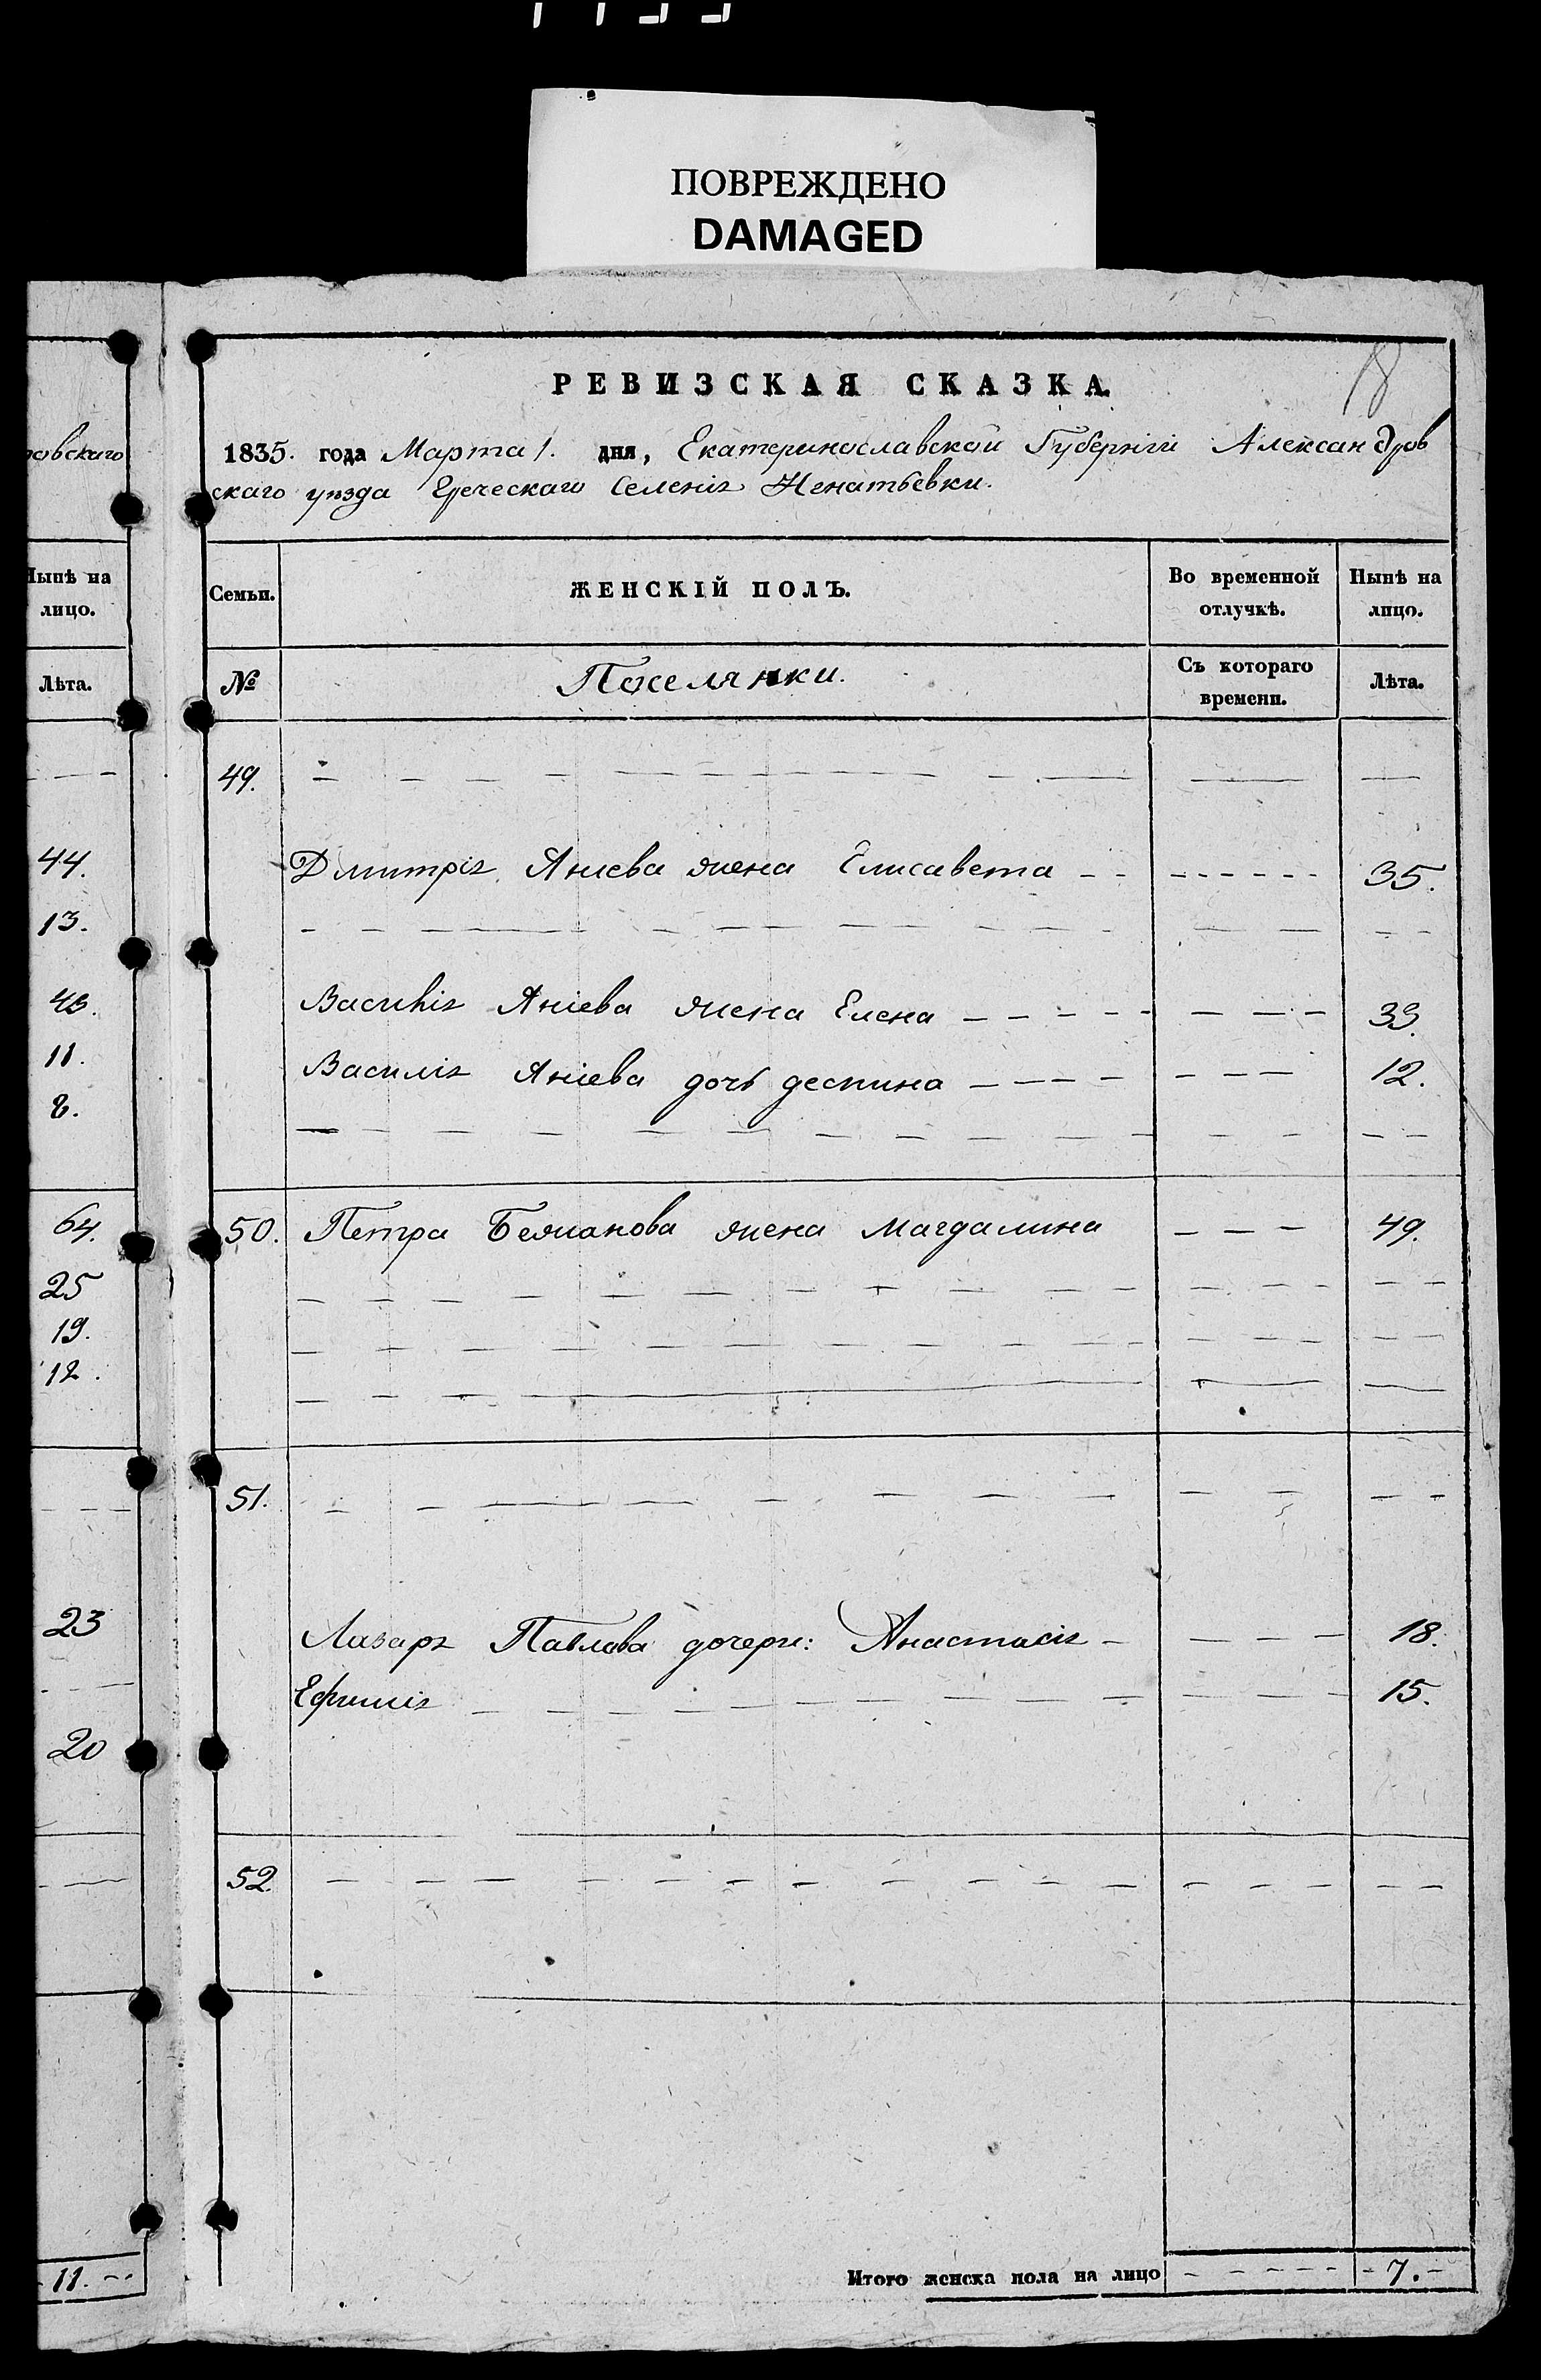 ПОВРЕЖДЕНО
DAMAGED
РЕВИЗСКАЯ СКАЗКА.
18
1835. года Марта 1. дня, Екатеринославской Губерніи Александров
скаго уезда Греческаго Селенія
ровскаго
Нынѣ на
лицо.
Лѣта.
44.
13.
43.
11.
8.
64.
25
19.
12.
23
20
11.
Семьи.
ЖЕНСКІЙ ПОЛЪ.
Во временной
отлучкѣ.
Нынѣ на
лицо.
№
Поселянки.
Съ котораго
времени.
Лѣта.
49.
Дмитрія Аніева жена Елисавета 35.
Василія Аніева жена Елена 33.
Василія Аніева дочь деспина 12.
50. Петра Бежанова жена Магдалина 49.
51.
Лазаря Павлова дочери: Анастасія 18.
Ефимія 15.
52.
Итого женска пола на лицо 7.